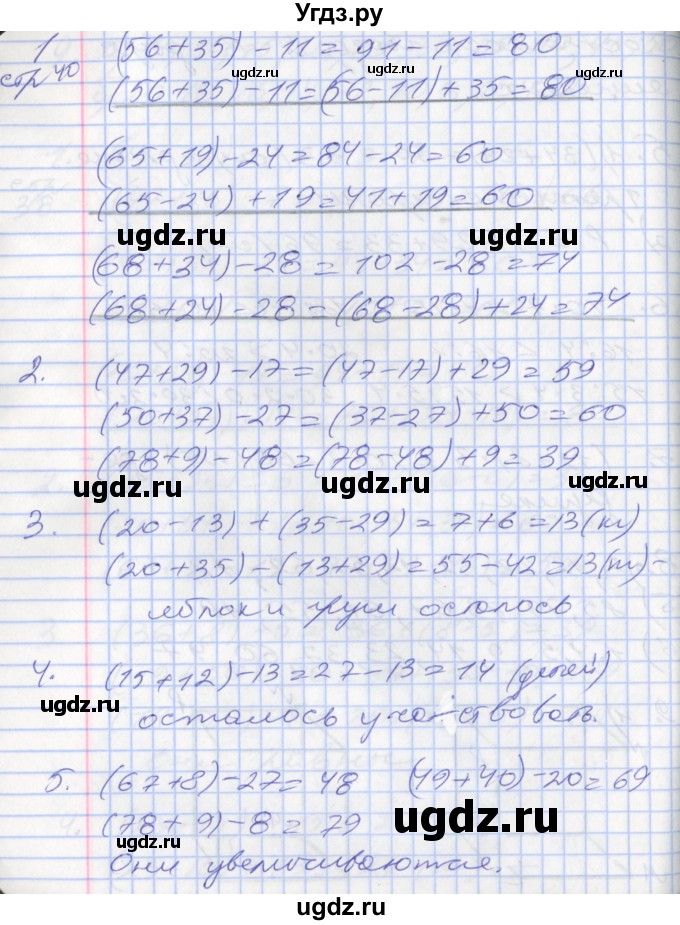 Угдз.ру
1 (56+35)-11=91-11=80
стр 40 (56+35)-11=(56-11)+35=80
ugdz.ru ugdz.ru ugdz.ru
(65+19)-24=84-24=60
(65-24)+19=41+19=60
ugdz.ru ugdz.ru
(68+34)-28=102-28=74
(68+24)-28=(68-28)+24=74
2. (47+29)-17=(47-17)+29=59
(50+37)-27=(37-27)+50=60
(78+9)-48=(78-48)+9=39
ugdz.ru ugdz.ru
3. (20-13)+(35-29)=7+6=13(м)
(20+35)-(13+29)=55-42=13(m)-
яблок и груш осталось
4. (15+12)-13=27-13=14 (детей)
ugdz.ru ugdz.ru
осталось участвовать.
5. (67+8)-27=48 (49+40)-20=69
(78+9)-8=79
ugdz.ru ugdz.ru
Они увеличиваются.
ugdz.ru